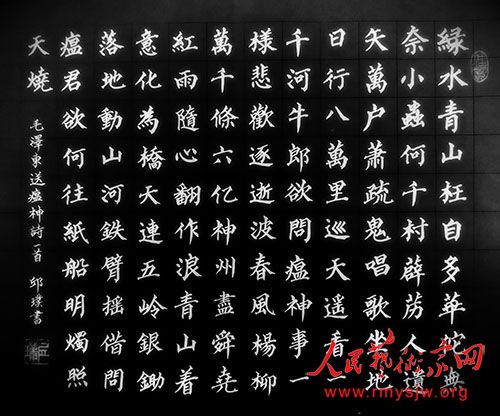 緑水青山枉自多華佗無
奈小蟲何千村薜苈人遺
矢萬户蕭疏鬼唱歌坐地
日行八萬里巡天遥看一
千河牛郎欲問瘟神事一
樣悲歡逐逝波春風楊柳
萬千條六亿神州盡舜堯
紅雨隨心翻作浪青山着
意化為橋天連五岭銀鋤
落地動山河鉄臂摇借問
瘟君欲何往紙船明燭照
天燒
毛澤東送瘟神詩一首 邱璞書
人民艺术家网
www.rmysjw.org